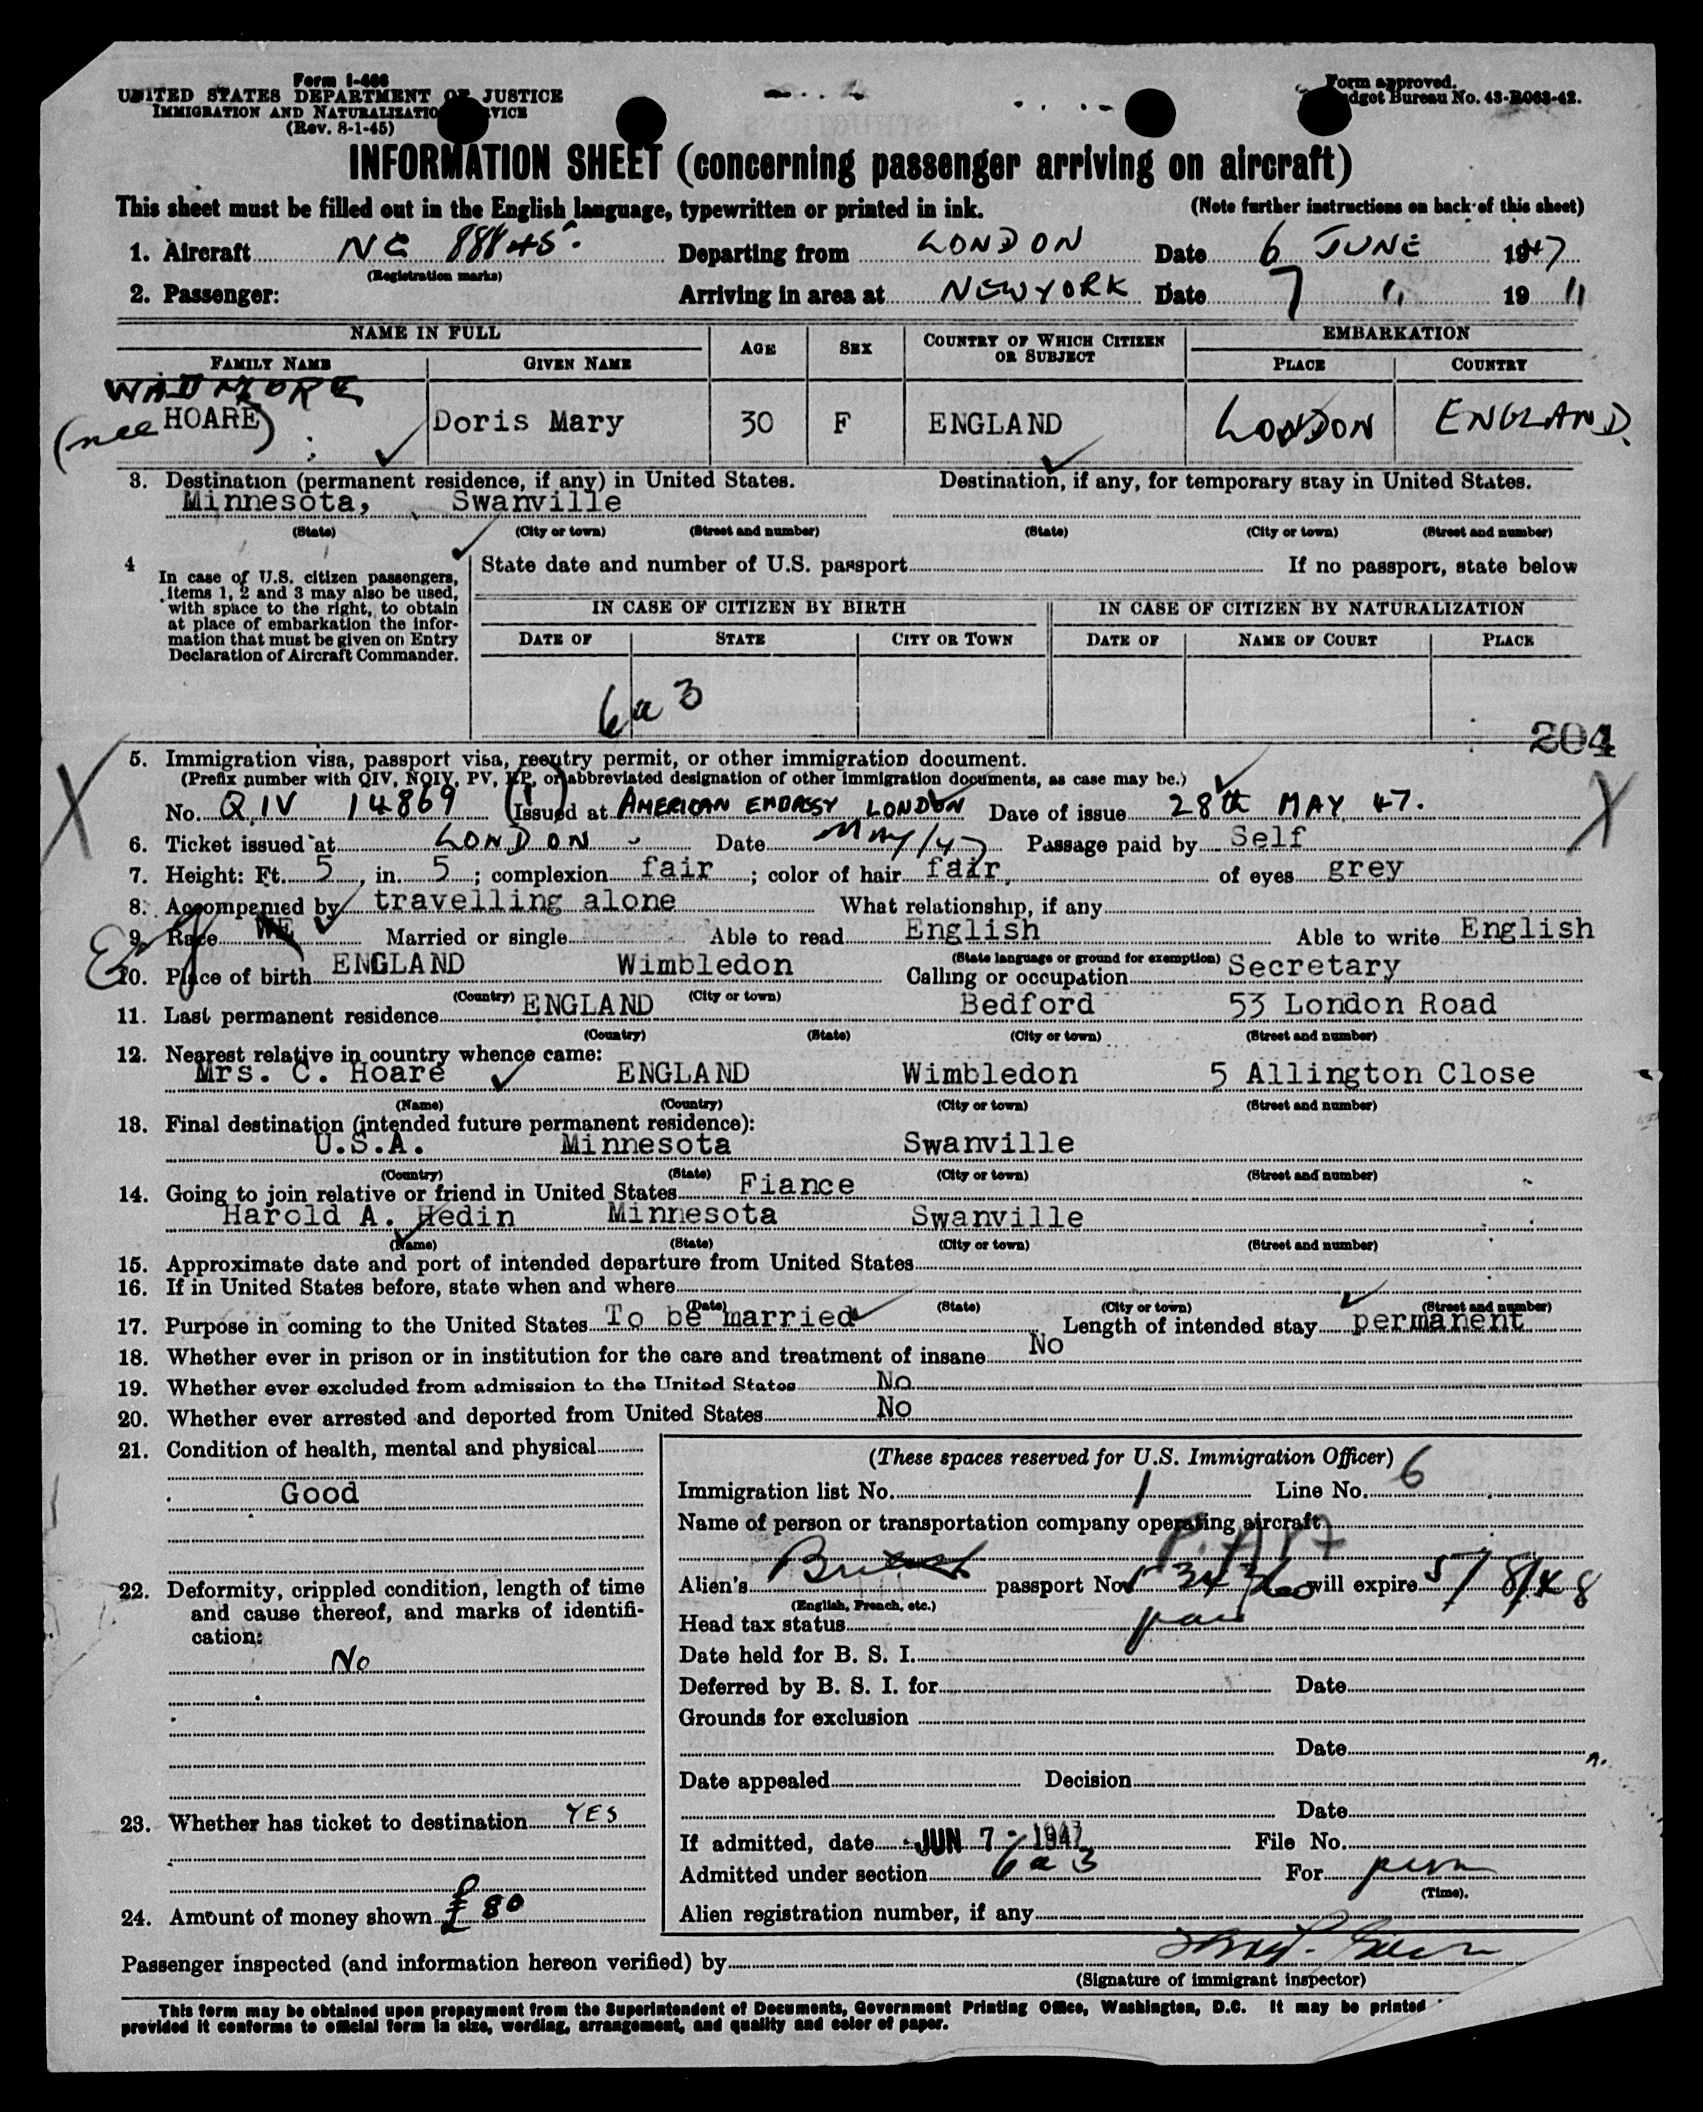 Form I-466
UNITED STATES DEPARTMENT OF JUSTICE
IMMIGRATION AND NATURALIZATION SERVICE
(Rev. 8-1-45)
Form approved.
Budget Bureau No. 43-R063-42.
INFORMATION SHEET (concerning passenger arriving on aircraft)
This sheet must be filled out in the English language, typewritten or printed in ink. (Note further instructions on back of this sheet)
1. Aircraft NC 88845. Departing from LONDON Date 6 JUNE 1947
(Registration marks)
2. Passenger: Arriving in area at NEW YORK Date 7 " 19 "
NAME IN FULL AGE SEX COUNTRY OF WHICH CITIZEN OR SUBJECT EMBARKATION
FAMILY NAME GIVEN NAME PLACE COUNTRY
(nee HOARE) Doris Mary 30 F ENGLAND LONDON ENGLAND.
3. Destination (permanent residence, if any) in United States. Destination, if any, for temporary stay in United States.
Minnesota, Swanville
(State) (City or town) (Street and number) (State) (City or town) (Street and number)
4 In case of U.S. citizen passengers, items 1, 2 and 3 may also be used, with space to the right, to obtain at place of embarkation the information that must be given on Entry Declaration of Aircraft Commander.
State date and number of U.S. passport If no passport, state below
IN CASE OF CITIZEN BY BIRTH IN CASE OF CITIZEN BY NATURALIZATION
DATE OF STATE CITY OR TOWN DATE OF NAME OF COURT PLACE
6a3
204
5. Immigration visa, passport visa, reentry permit, or other immigration document.
(Prefix number with QIV, NQIV, PV, RP, or abbreviated designation of other immigration documents, as case may be.)
No. QIV 14869 Issued at AMERICAN EMBASSY LONDON Date of issue 28th MAY 47.
6. Ticket issued at LONDON Date May/47 Passage paid by Self
7. Height: Ft. 5, in. 5; complexion fair; color of hair fair, of eyes grey
8. Accompanied by travelling alone What relationship, if any
Eng
9. Race Married or single Able to read English Able to write English
(State language or ground for exemption)
10. Place of birth ENGLAND Wimbledon Calling or occupation Secretary
(Country) (City or town)
11. Last permanent residence ENGLAND Bedford 53 London Road
(Country) (State) (City or town) (Street and number)
12. Nearest relative in country whence came:
Mrs. C. Hoare ENGLAND Wimbledon 5 Allington Close
(Name) (Country) (City or town) (Street and number)
13. Final destination (intended future permanent residence):
U.S.A. Minnesota Swanville
(Country) (State) (City or town) (Street and number)
14. Going to join relative or friend in United States Fiance
Harold A. Hedin Minnesota Swanville
(Name) (State) (City or town) (Street and number)
15. Approximate date and port of intended departure from United States
16. If in United States before, state when and where
(Date) (State) (City or town) (Street and number)
17. Purpose in coming to the United States To be married Length of intended stay permanent
18. Whether ever in prison or in institution for the care and treatment of insane No
19. Whether ever excluded from admission to the United States No
20. Whether ever arrested and deported from United States No
21. Condition of health, mental and physical
Good
22. Deformity, crippled condition, length of time
and cause thereof, and marks of identifi-
cation:
No
23. Whether has ticket to destination YES
24. Amount of money shown £ 80
(These spaces reserved for U.S. Immigration Officer)
Immigration list No. 1 Line No. 6
Name of person or transportation company operating aircraft
Alien's British passport No. will expire 5/8/48
(English, French, etc.)
Head tax status
Date held for B. S. I.
Deferred by B. S. I. for Date
Grounds for exclusion
Date
Date appealed Decision
Date
If admitted, date JUN 7 - 1947 File No.
Admitted under section 6a3 For perm
(Time).
Alien registration number, if any
Passenger inspected (and information hereon verified) by
(Signature of immigrant inspector)
This form may be obtained upon prepayment from the Superintendent of Documents, Government Printing Office, Washington, D.C. It may be printed
provided it conforms to official form in size, wording, arrangement, and quality and color of paper.